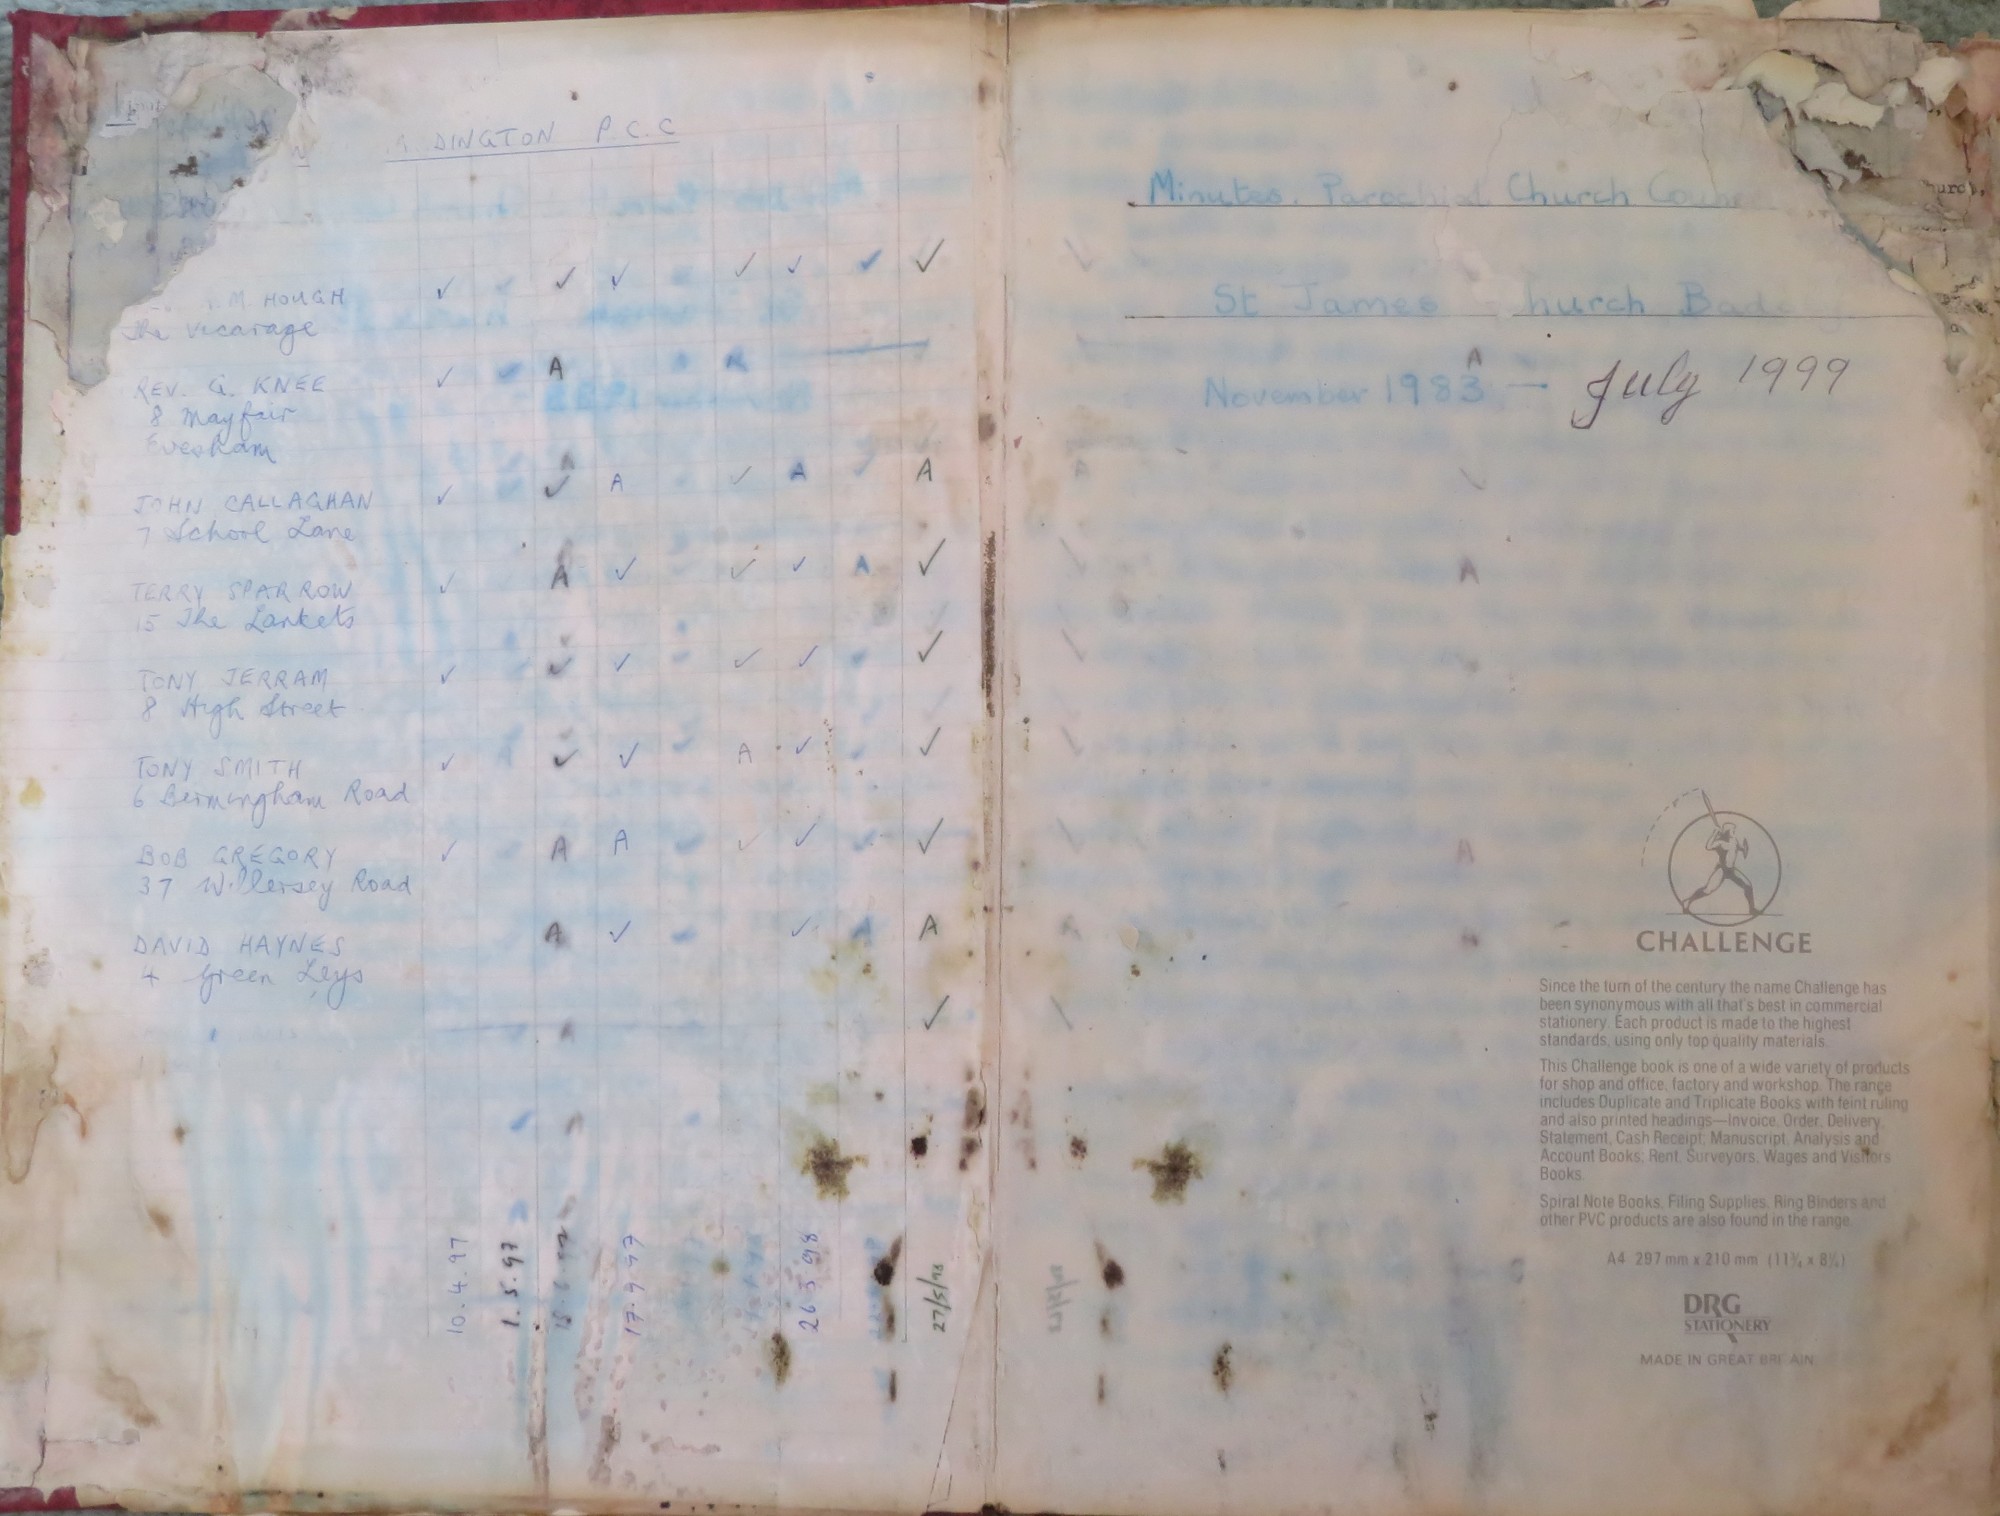 DINGTON P.C.C
M. HOUGH ✓ ✓ ✓ ✓ ✓ ✓ ✓
The Vicarage
REV. G. KNEE ✓ A
8 Mayfair
Evesham
JOHN CALLAGHAN ✓ ✓ A ✓ A ✓ A
7 School Lane
TERRY SPARROW ✓ A ✓ ✓ ✓ A ✓
15 The Lankets
TONY JERRAM ✓ ✓ ✓ ✓ ✓ ✓
8 High Street
TONY SMITH ✓ ✓ ✓ A ✓ ✓
6 Birmingham Road
BOB GREGORY ✓ A A ✓ ✓ ✓
37 Willersey Road
DAVID HAYNES A ✓ ✓ A A
4 Green Leys
✓
10.4.97
1.5.97
17.9.97
26 3 98
27/5/98
Minutes. Parochial Church
St James Church
November 1983 — July 1999
CHALLENGE
Since the turn of the century the name Challenge has
been synonymous with all that's best in commercial
stationery. Each product is made to the highest
standards, using only top quality materials.
This Challenge book is one of a wide variety of products
for shop and office, factory and workshop. The range
includes Duplicate and Triplicate Books with feint ruling
and also printed headings—Invoice, Order, Delivery,
Statement, Cash Receipt; Manuscript, Analysis and
Account Books; Rent, Surveyors, Wages and Visitors
Books.
Spiral Note Books, Filing Supplies, Ring Binders and
other PVC products are also found in the range.
A4 297 mm x 210 mm (11¾ x 8¼)
DRG
STATIONERY
MADE IN GREAT BRITAIN